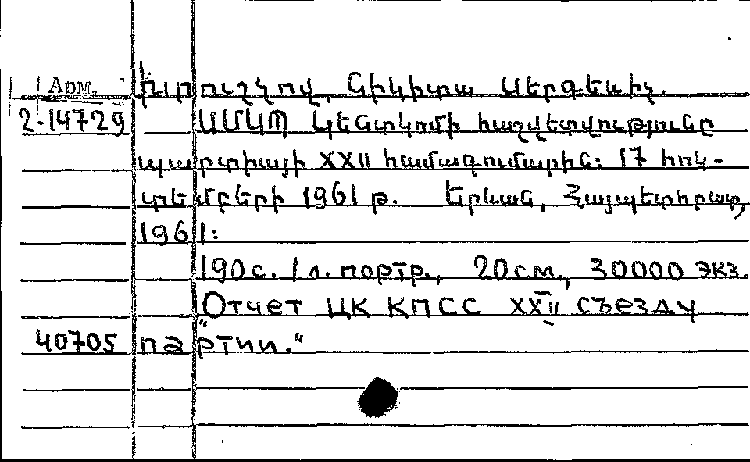 Арм. Խրուշչով, Նիկիտա Սերգեևիչ.
2-14729 ՍՄԿՊ Կենտկոմի հաշվետվությունը
պարտիայի XXII համագումարին: 17 հոկ-
տեմբերի 1961 թ. Երևան, Հայպետհրատ,
1961:
190с. 1л. портр., 20см., 30000 экз.
"Отчет ЦК КПСС XXII съезду
40705 партии."